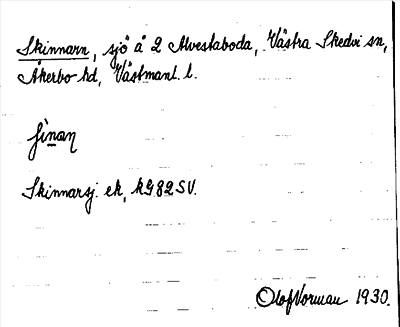 Skinnarn, sjö å 2 Alvestaboda, Västra Skedvi sn,
Åkerbo hd, Västmanl. l.
Skinnarsj. ek, kG 82 SV.
Olof Norman 1930.